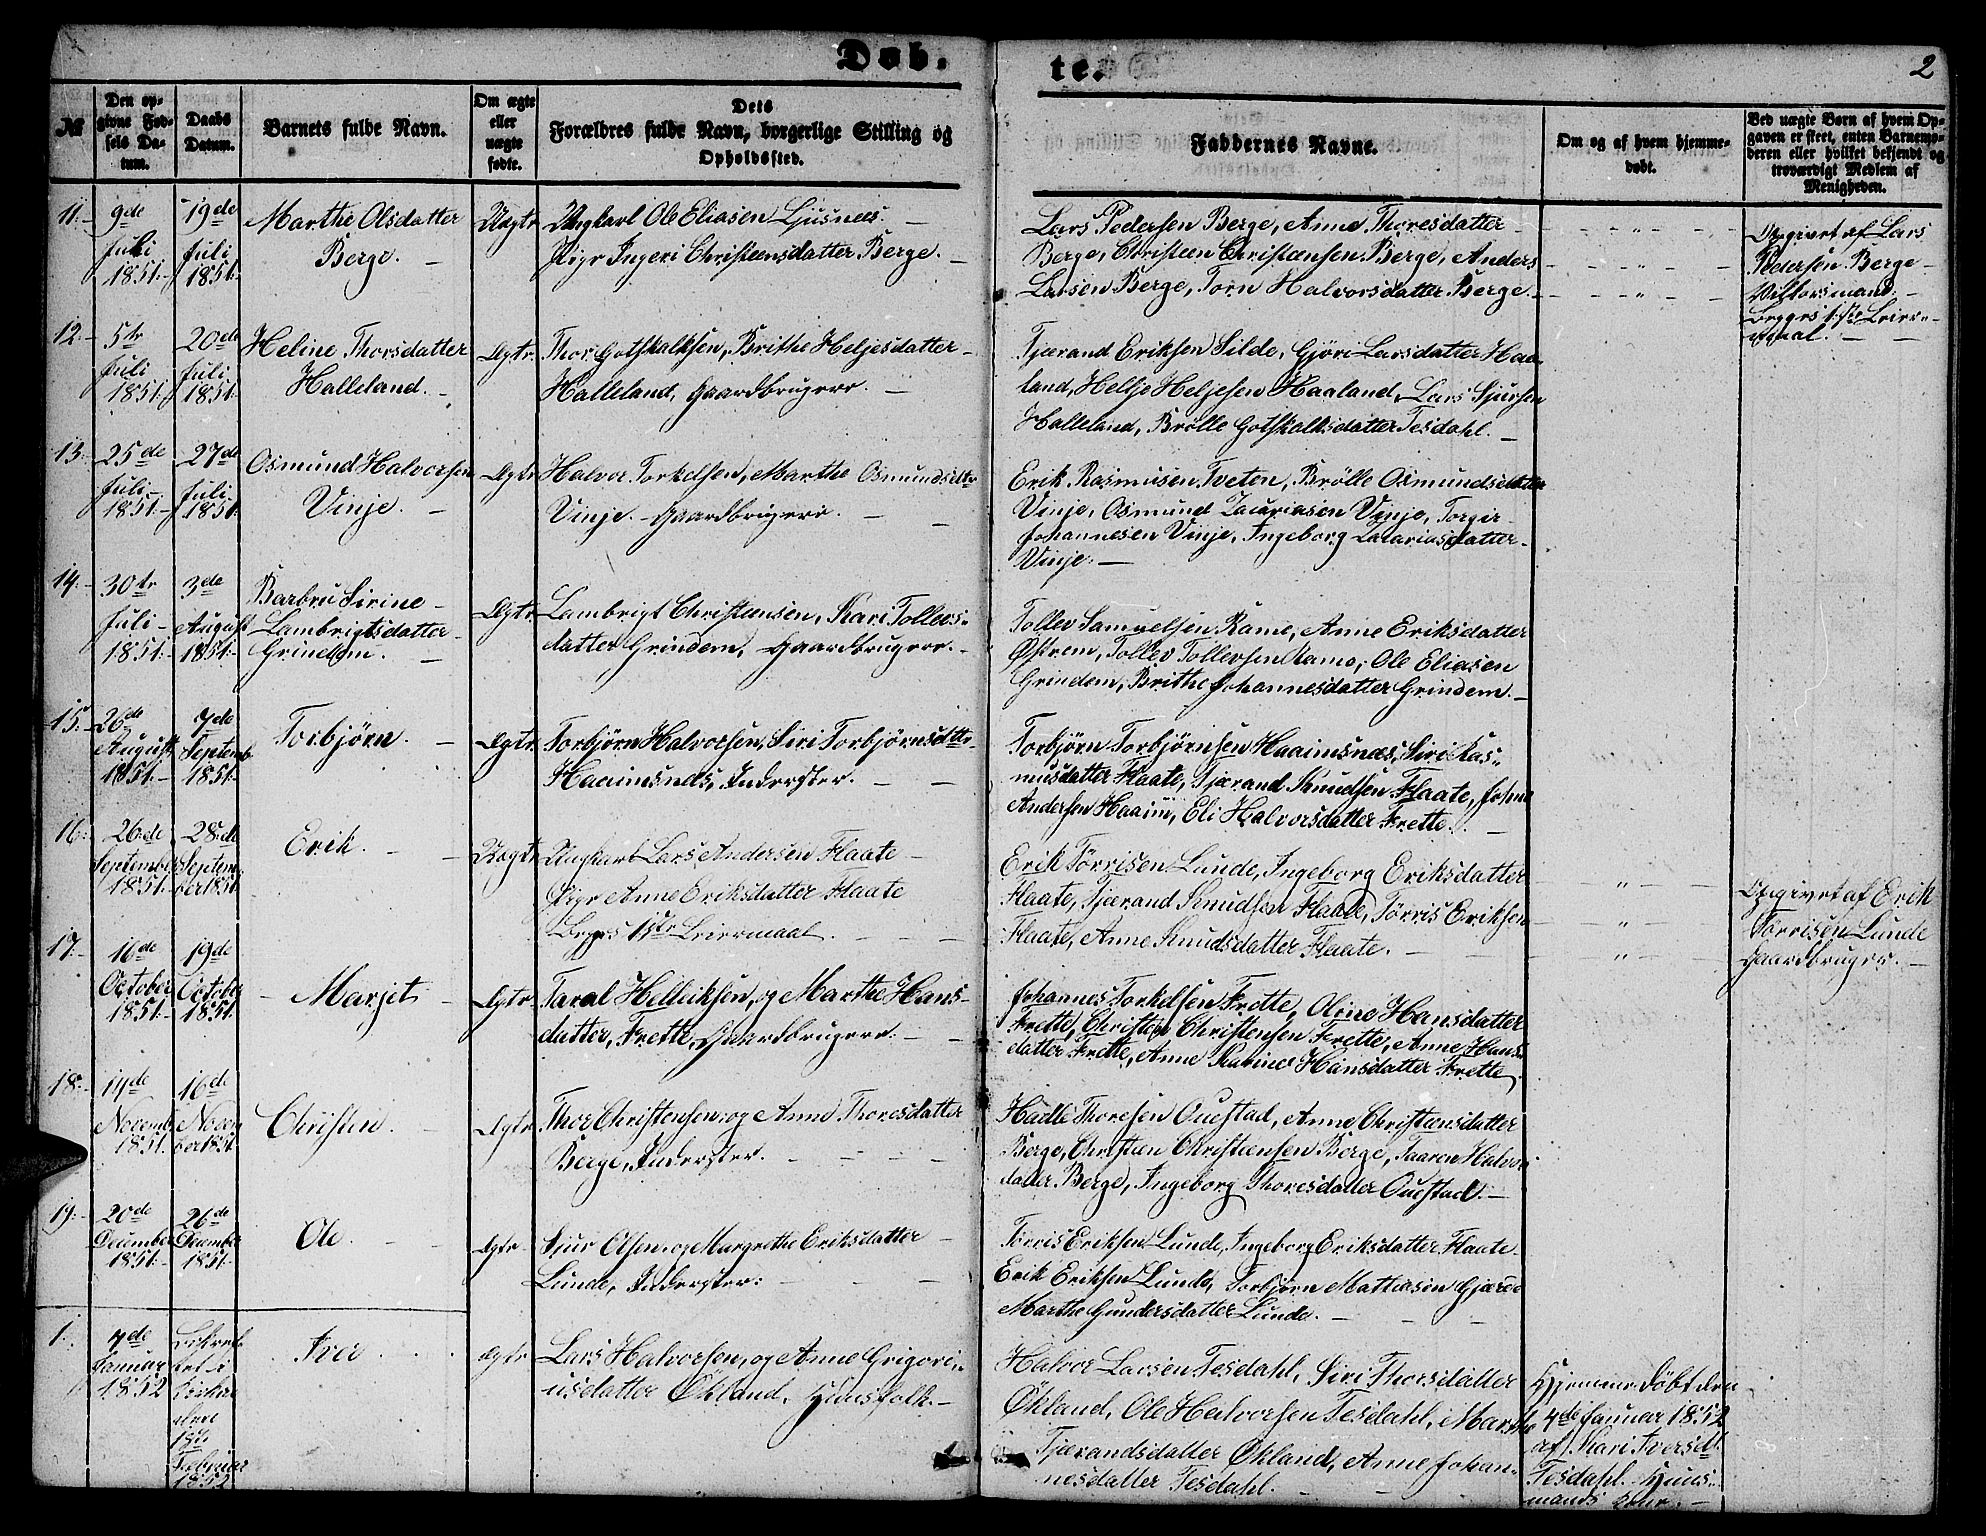 Døb.
te.
2
№
Den op-
givne Fød-
sels Da-
tum.
Daabs
Datum.
Barnets fulde Navn.
Om ægte
eller
uægte
fødte.
Dets
Forældres fulde Navn, borgerlige Stilling og
Opholdssted.
Faddernes Navne.
Om og af hvem hjemme-
døbt.
Ved uægte Børn af hvem Op-
gaven er skeet, enten Barnemo-
deren eller hvilket bekjendt og
troværdigt Medlem af
Menigheden.
11.
9de
Juli
1851.
19de
Juli
1851.
Marthe Olsdatter
Berge.
Uægte
Ungkarl Ole Eliasen Ljusnæs.
Pige Ingeri Christensdatter Berge.
Lars Pedersen Berge, Anne Thoresdatter
Berge, Christen Christensen Berge, Anders
Larsen Berge, Torn Halvorsdatter Berge.
Opgivet af Lars
Pedersen Berge
Begges 1ste Leier-
maal.
12.
5te
Juli
1851.
20de
Juli
1851.
Heline Thorsdatter
Halleland.
Ægte
Thor Gotskalksen, Brithe Heljesdatter
Halleland, Gaardbrugere.
Tjærand Eriksen Silde, Gjøri Larsdatter Haa-
land, Helje Heljesen Haaland, Lars Sjursen
Halleland, Brølle Gotskalksdatter Tesdahl.
13.
25de
Juli
1851.
27de
Juli
1851.
Osmund Halvorsen
Vinje.
Ægte
Halvor Torkelsen, Marthe Osmundsdtr
Vinje. Gaardbrugere.
Erik Rasmusen Tveten, Brølle Osmundsdatter
Vinje, Osmund Zacariasen Vinje, Torgir
Johannesen Vinje, Ingeborg Zacariasdatter
Vinje.
14.
30te
Juli
1851.
3de
August
1851.
Barbru Sirine
Lambrigtsdatter
Grindem.
Ægte
Lambrigt Christensen, Kari Tollevs-
datter Grindem, Gaardbrugere.
Tollev Samuelsen Rame, Anne Eriksdatter
Østrem, Tollev Tollevsen Rame, Ole Eliasen
Grindem, Brithe Johannesdatter Grindem.
15.
26de
August
1851.
7de
Septemb
1851.
Torbjørn.
Ægte
Torbjørn Halvorsen, Siri Torbjørnsdtr
Haaimsnæs, Inderster.
Torbjørn Torbjørnsen Haaimsnæs, Siri Ras-
musdatter Flaate, Tjærand Knudsen Flaate, Johan
Andersen Haaim, Eli Halvorsdatter Frette.
16.
26de
September
1851.
28de
Septem-
ber 1851.
Erik.
Uægte
Ungkarl Lars Andersen Flaate
Pige Anne Eriksdatter Flaate
Begges 1ste Leiermaal.
Erik Tørrisen Lunde, Ingeborg Eriksdatter
Flaate, Tjærand Knudsen Flaate, Tørris Eriksen
Flaate, Anne Knudsdatter Flaate.
Opgivet af Erik
Tørrisen Lunde
Gaardbruger.
17.
16de
October
1851.
19de
October
1851.
Marjet
Ægte
Taral Helliksen, og Marthe Hans-
datter, Frette, Gaardbrugere.
Johannes Torkelsen Frette, Oline Hansdatter
Frette, Christen Christensen Frette, Anne Hans-
datter Frette, Anne Karine Hansdatter Frette
18.
14de
Novemb
1851.
16de
Novem
ber 1851
Christen
Ægte
Thor Christensen, og Anne Thoresdatter
Berge, Inderster.
Hadle Thoresen Ouestad, Anne Christensdatter
Berge, Christen Christensen Berge, Taaren Halvo
datter Berge, Ingeborg Thoresdatter Ouestad.
19.
20de
December
1851.
26de
December
1851.
Ole.
Ægte
Sjur Olsen, og Margrethe Eriksdatter
Lunde, Inderster.
Tørris Eriksen Lunde, Ingeborg Eriksdatter Flaate
Erik Eriksen Lunde, Torbjørn Mathiesen Gjærde
Marthe Gundersdatter Lunde.
1.
4de
Januar
1852
Februar
1852
Iver
Ægte
Lars Halvorsen, og Anne Grigori-
usdatter Økland, Huusfolk.
Halvor Larsen Tesdahl, Siri Thorsdatter
Økland, Ole Halvorsen Tesdahl, Marthe
Tjærandsdatter Økland, Anne Johan-
nesdatter Tesdahl.
Hjemmedøbt den
4de Januar 1852
af Kari Iversd.
Tesdahl, Huus-
mands Kone.